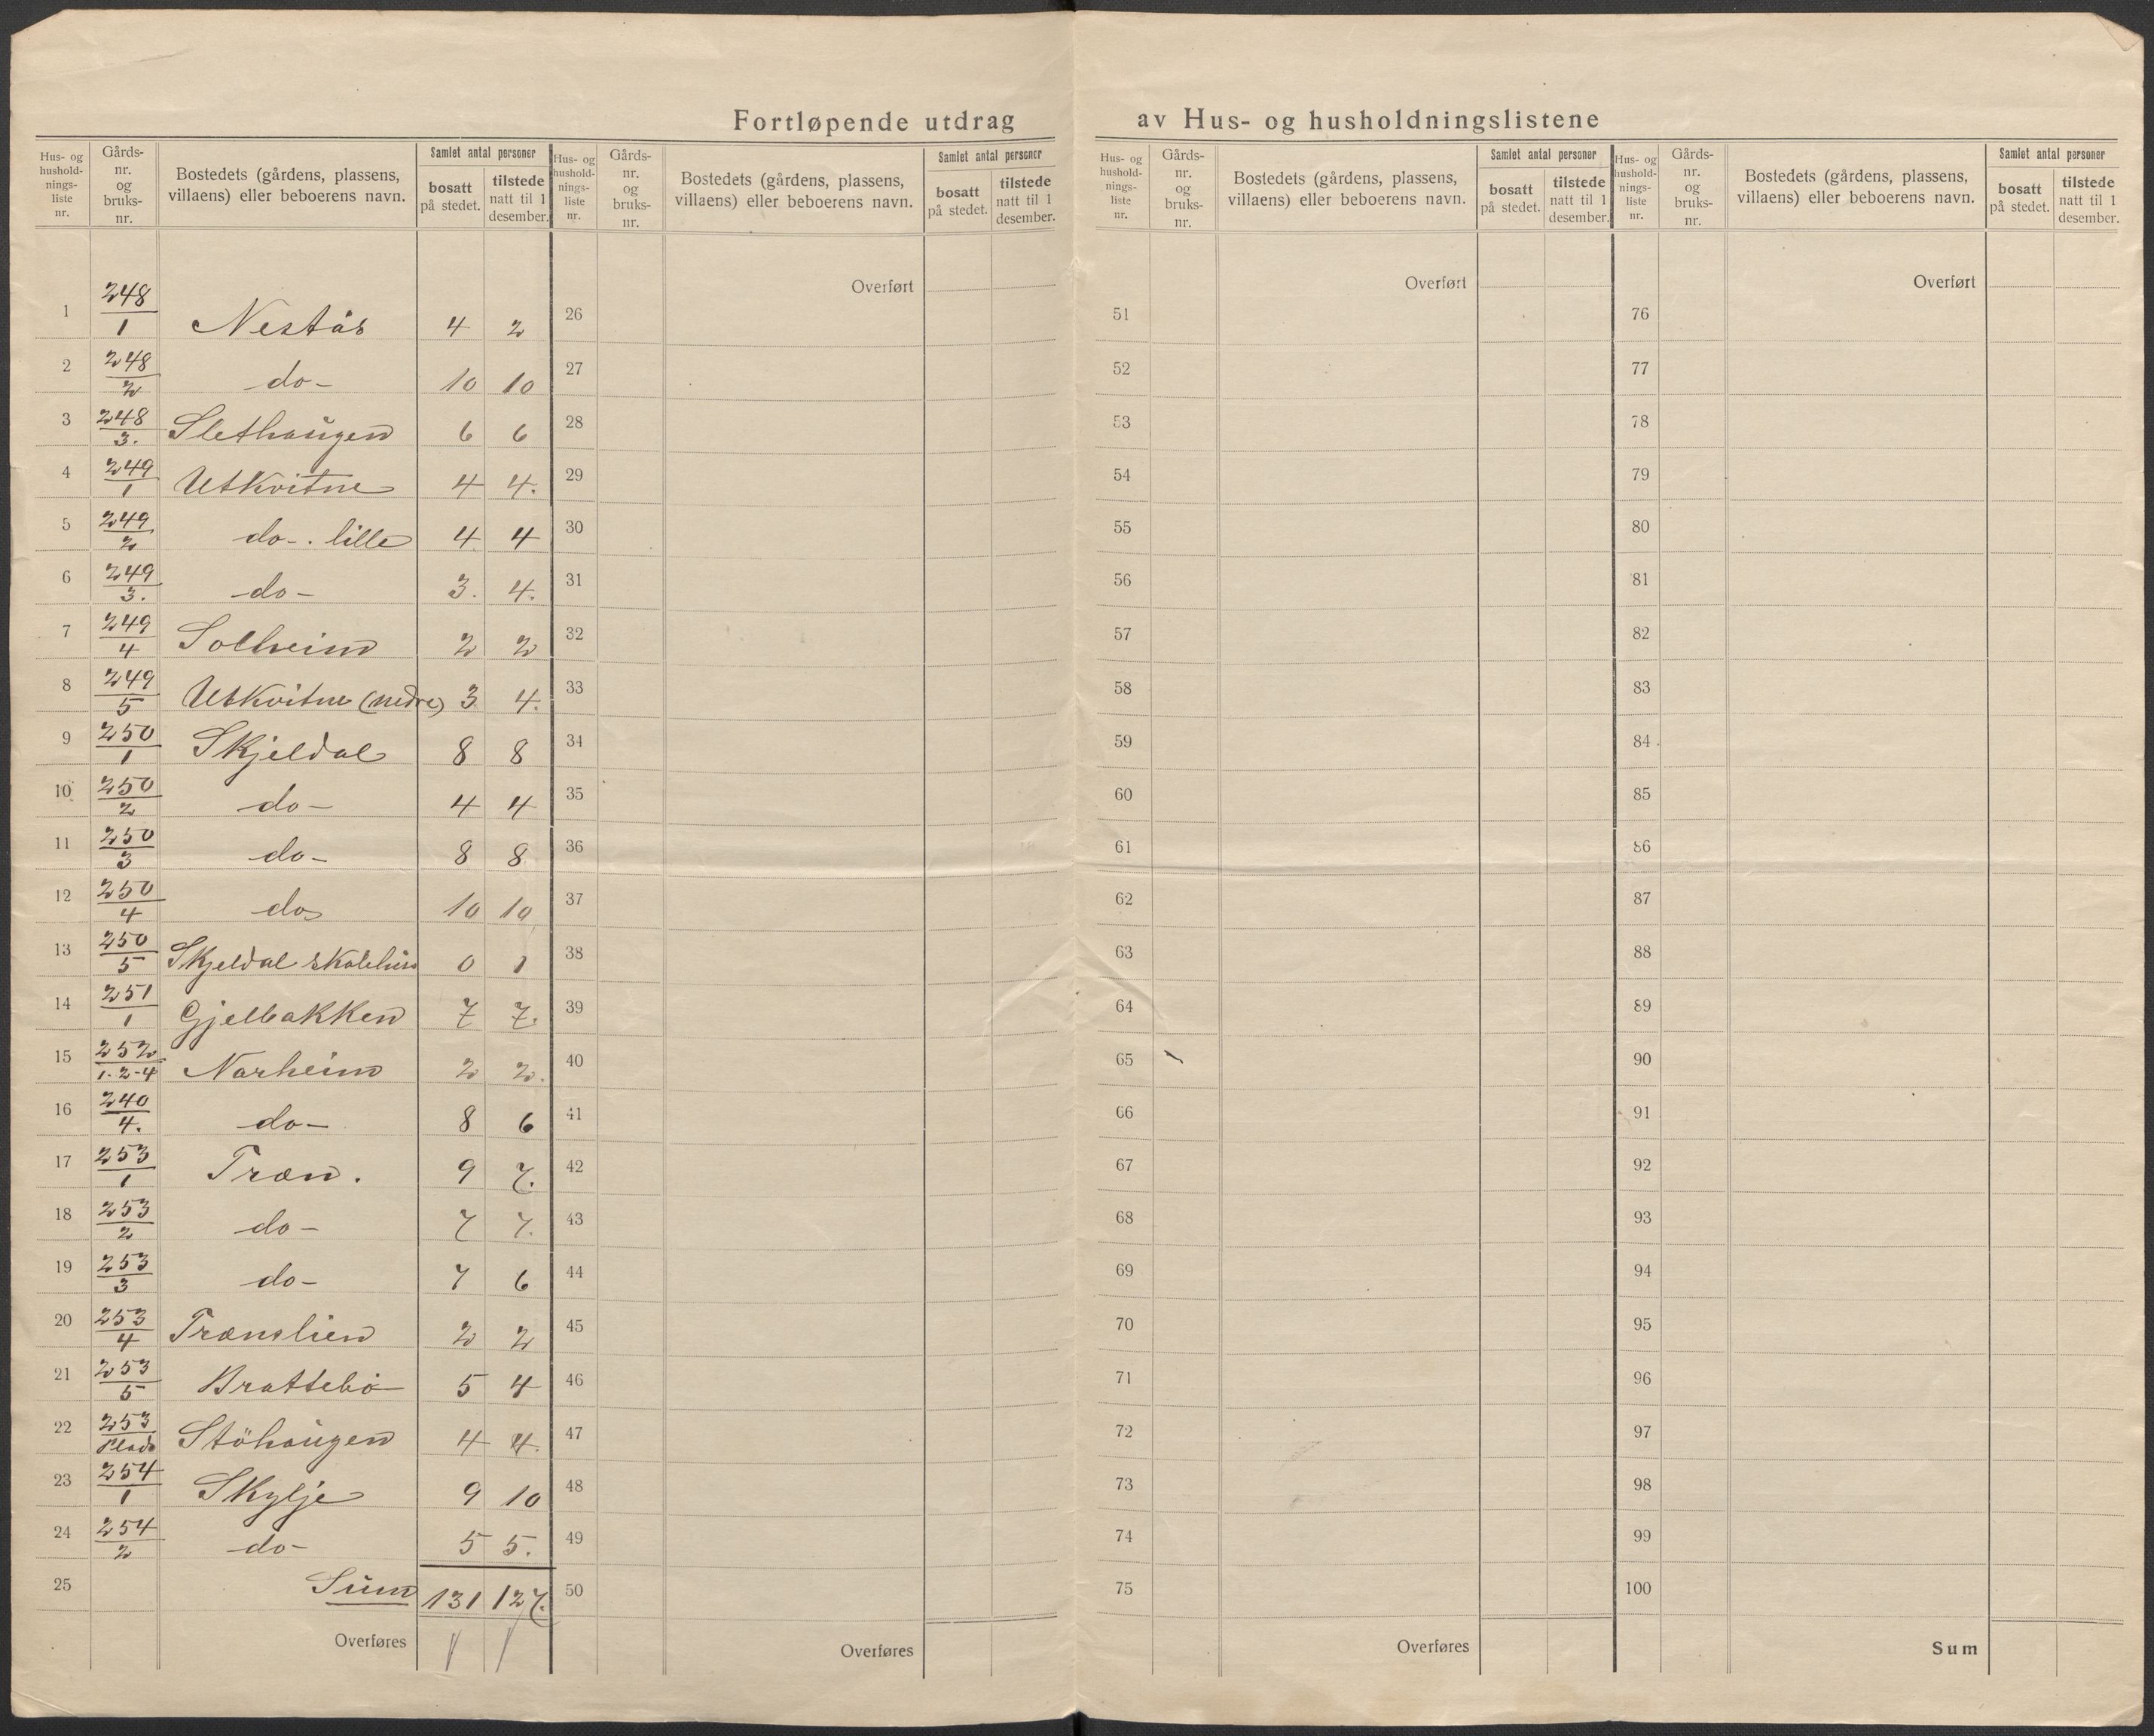 Fortløpende utdrag av Hus- og husholdningslistene
Hus- og hushold-nings-liste nr. Gårds-nr. og bruks-nr. Bostedets (gårdens, plassens, villaens) eller beboerens navn. Samlet antal personer bosatt på stedet. tilstede natt til 1 desember.
Hus- og hushold-nings-liste nr. Gårds-nr. og bruks-nr. Bostedets (gårdens, plassens, villaens) eller beboerens navn. Samlet antal personer bosatt på stedet. tilstede natt til 1 desember.
Hus- og hushold-nings-liste nr. Gårds-nr. og bruks-nr. Bostedets (gårdens, plassens, villaens) eller beboerens navn. Samlet antal personer bosatt på stedet. tilstede natt til 1 desember.
Hus- og hushold-nings-liste nr. Gårds-nr. og bruks-nr. Bostedets (gårdens, plassens, villaens) eller beboerens navn. Samlet antal personer bosatt på stedet. tilstede natt til 1 desember.
1 248/1 Nestås 4 2
2 248/2 do- 10 10
3 248/3. Slethaugen 6 6
4 249/1 Utkvitne 4 4.
5 249/2 do-. lille 4 4
6 249/3. do- 3. 4.
7 249/4 Solheim 2 2
8 249/5 Utkvitne (nedre) 3 4.
9 250/1 Skjeldal 8 8
10 250/2 do- 4 4
11 250/3 do- 8 8
12 250/4 do 10 10
13 250/5 Skjeldal skolehus 0 1
14 251/1 Gjelbakken 7 7.
15 252/1-2-4 Narheim 2 2.
16 240/4. do- 8 6
17 253/1 Træn. 9 7.
18 253/2 do- 7 7.
19 253/3 do- 7 6
20 253/4 Trænslien 2 2
21 253/5 Brattebö 5 4
22 253/Plads Stöhaugen 4 4.
23 254/1 Skylje 9 10
24 254/2 do- 5 5.
25 Sum 131 127.
Overføres
Overført
26
27
28
29
30
31
32
33
34
35
36
37
38
39
40
41
42
43
44
45
46
47
48
49
50
Overføres
Overført
51
52
53
54
55
56
57
58
59
60
61
62
63
64
65
66
67
68
69
70
71
72
73
74
75
Overføres
Overført
76
77
78
79
80
81
82
83
84
85
86
87
88
89
90
91
92
93
94
95
96
97
98
99
100
Sum